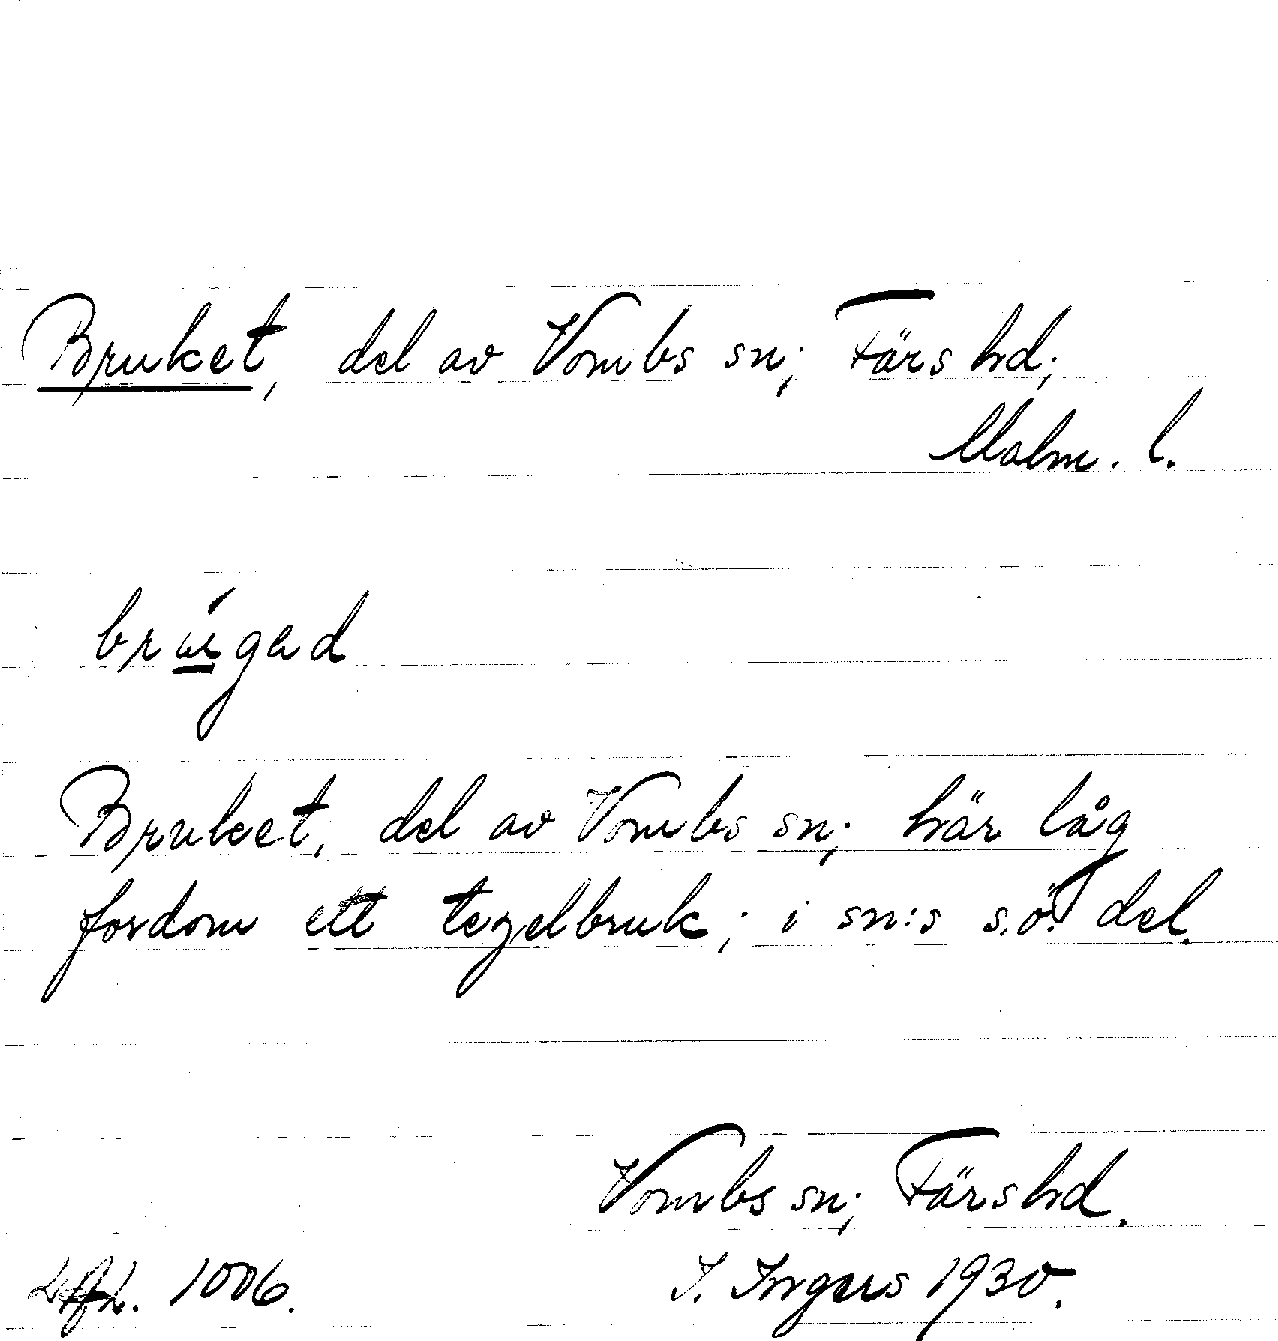 Bruket, del av Vombs sn; Färs hd;
Malm. l.
brúged
Bruket, del av Vombs sn; här låg
fordom ett tegelbruk; i sn:s s.ö. del.
Vombs sn; Färs hd.
1006.
I. Ingers 1930.